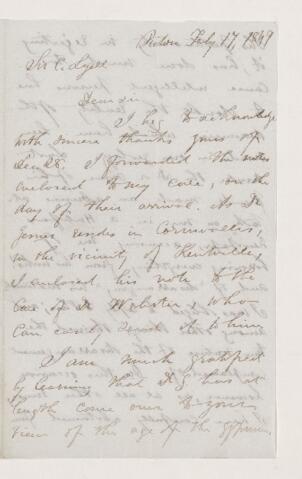 Pictou Feby. 17, 1849
Sir C. Lyell
Dear sir
I beg to acknowledge
with sincere thanks yours of
Dec 28. I forwarded the notes
enclosed to my care, on the
day of their arrival. As Dr
resides in Cornwallis,
in the vicinity of Kentville,
I enclosed his note to the
care of Dr Webster, who
can easily send it to him
I am much gratified
by learning that has at
length come over to your
view of the age of the gypsum